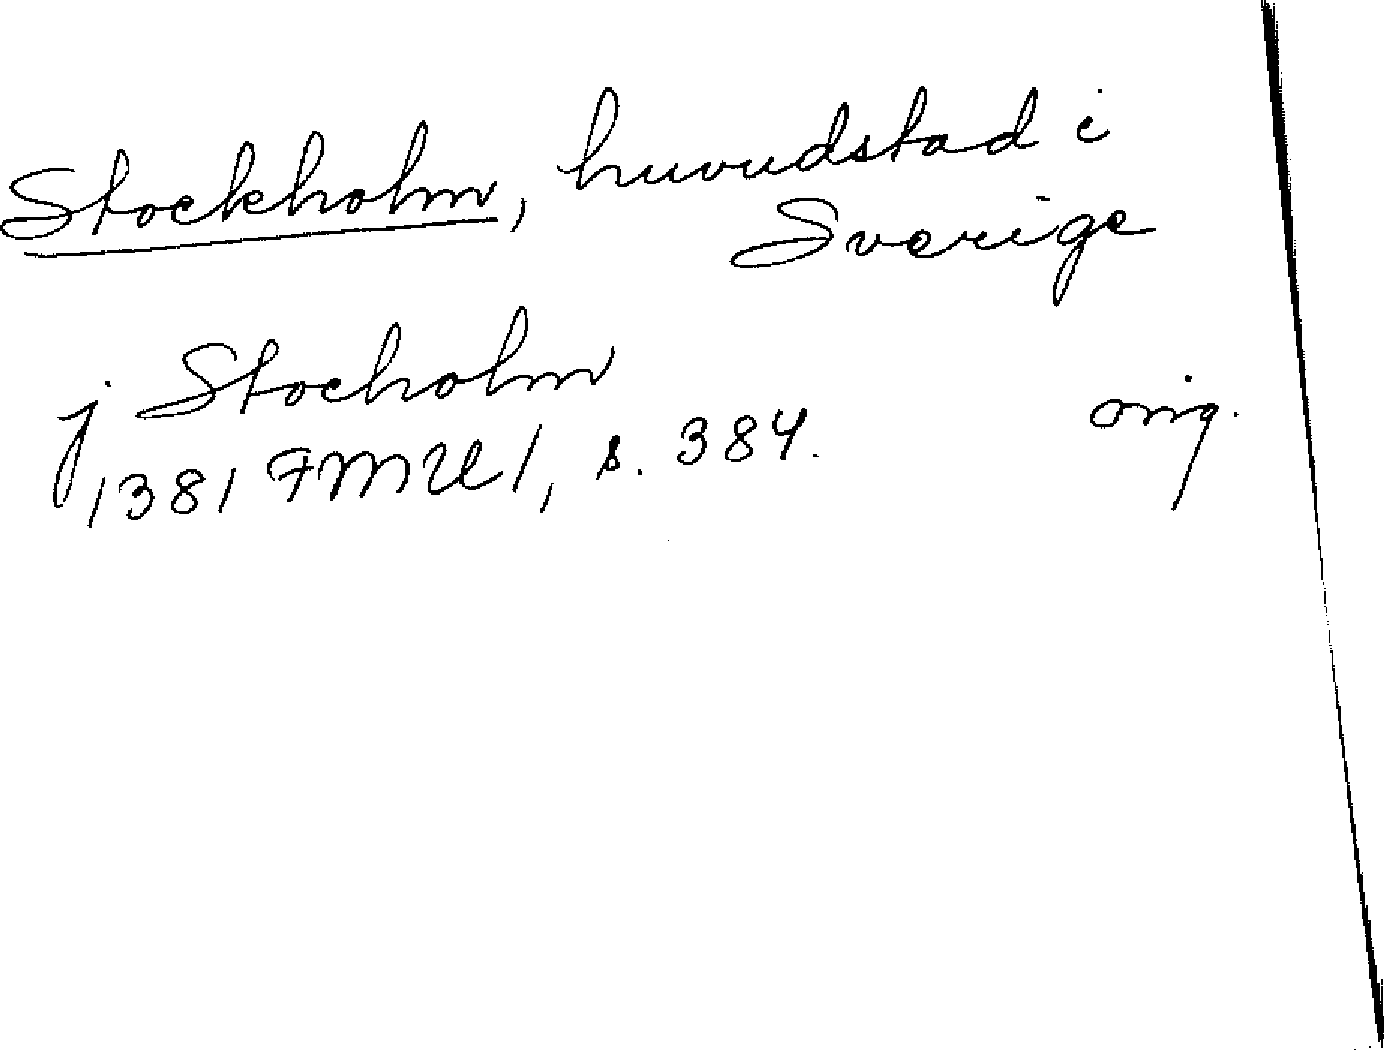 Stockholm, huvudstad i
Sverige
j Stocholm
1381 FMU 1, s. 384. orig.